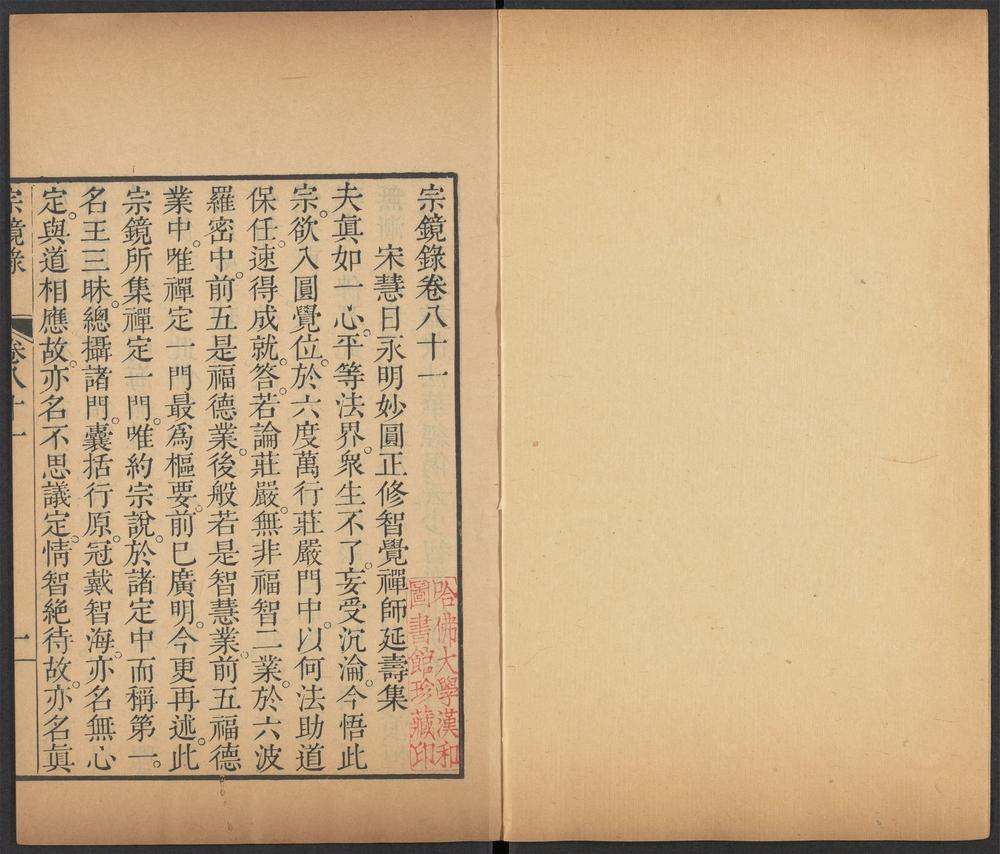 宗鏡錄卷八十一
宋慧日永明妙圓正修智覺禪師延壽集
夫眞如一心。平等法界。衆生不了。妄受沉淪。今悟此
宗。欲入圓覺位。於六度萬行莊嚴門中。以何法助道
保任。速得成就。答。若論莊嚴。無非福智二業。於六波
羅密中。前五是福德業。後般若是智慧業。前五福德
業中。唯禪定一門最爲樞要。前已廣明。今更再述。此
宗鏡所集禪定一門。唯約宗說。於諸定中而稱第一。
名王三昧。總攝諸門。囊括行原。冠戴智海。亦名無心
定。與道相應故。亦名不思議定。情智絕待故。亦名眞
宗鏡錄 卷八十一 一
哈佛大學漢和
圖書館珍藏印